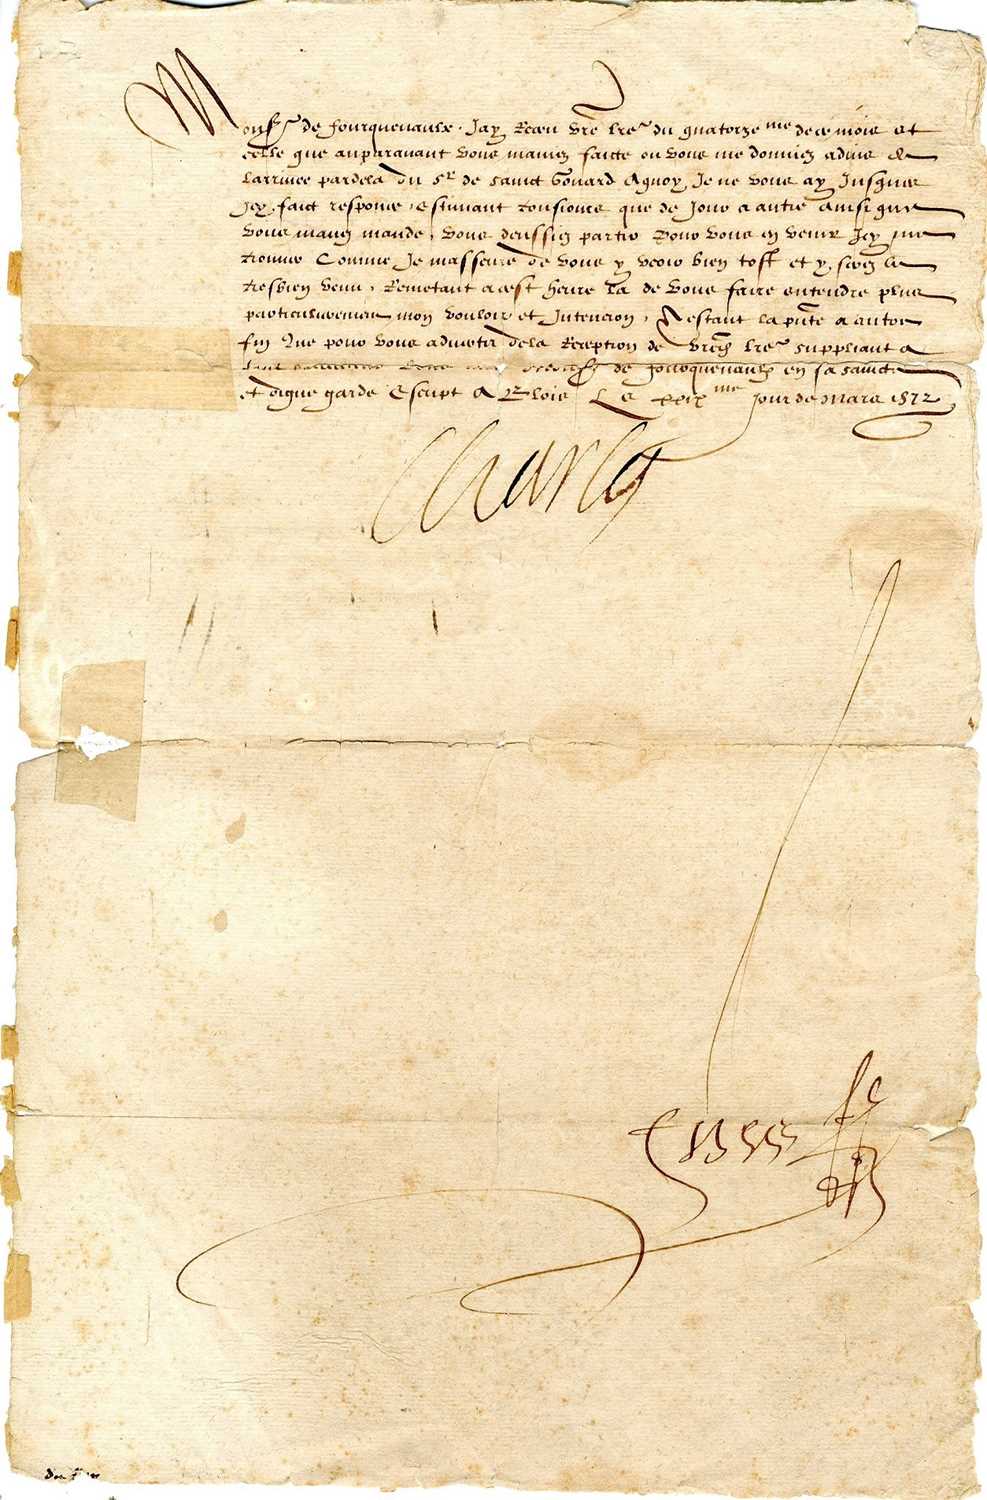 Monsr de fourquevaulx, Jay Receu vre lre du quatorzeme de ce moie et
celle que auparavant vous mauiez faicte ou vous me donniez aduis de
larriuee pardela du sr de sainct Gouard Aquoy Je ne vous ay Jusques
Icy faict response, Estimant tousioure que de Jour a autre Ainsi que
vous mauez mande, vous deussiez partir pour vous en venir Icy me
trouuer Comme Je masseure de vous y veoir bien tost et y serez le
tresbien venu, Remetant a cest heure la de vous faire entendre plus
particulierement mon vouloir et Intencion, Nestant la pnte a autre
fin Que pour vous aduertir dela Reception de vredes lres suppliant
de fourquevaulx en sa saincte
et digne garde Escript A Blois Le me Jour de Mars 1572
Charles